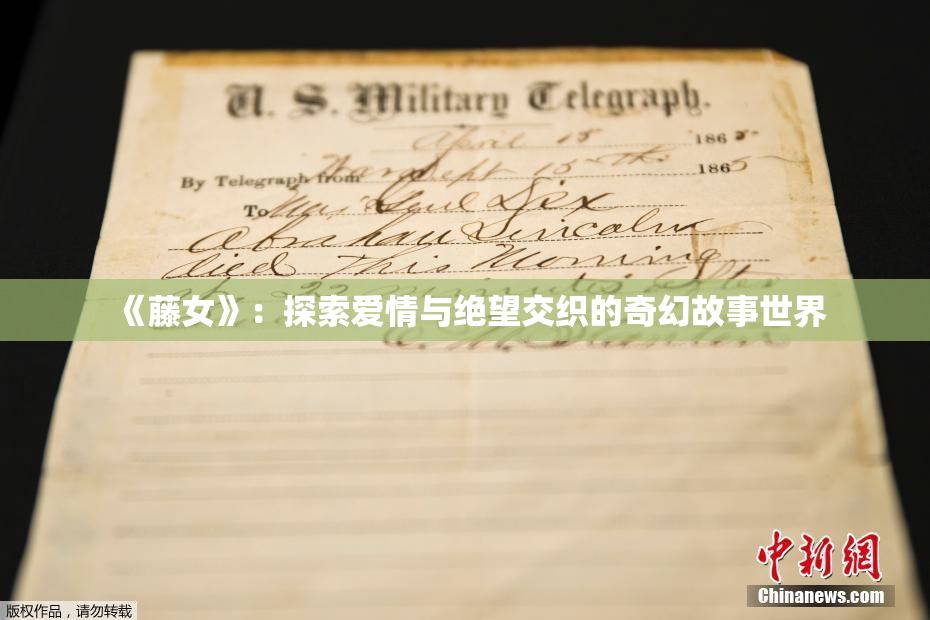 U. S. Military Telegraph.
April 15 1865
By Telegraph from War Dept 15th 1865
To Maj Genl Dix
Abraham Lincoln
died This Morning
at 22 minutes after
《藤女》：探索爱情与绝望交织的奇幻故事世界
E. M. Stanton
中新网
Chinanews.com
版权作品，请勿转载